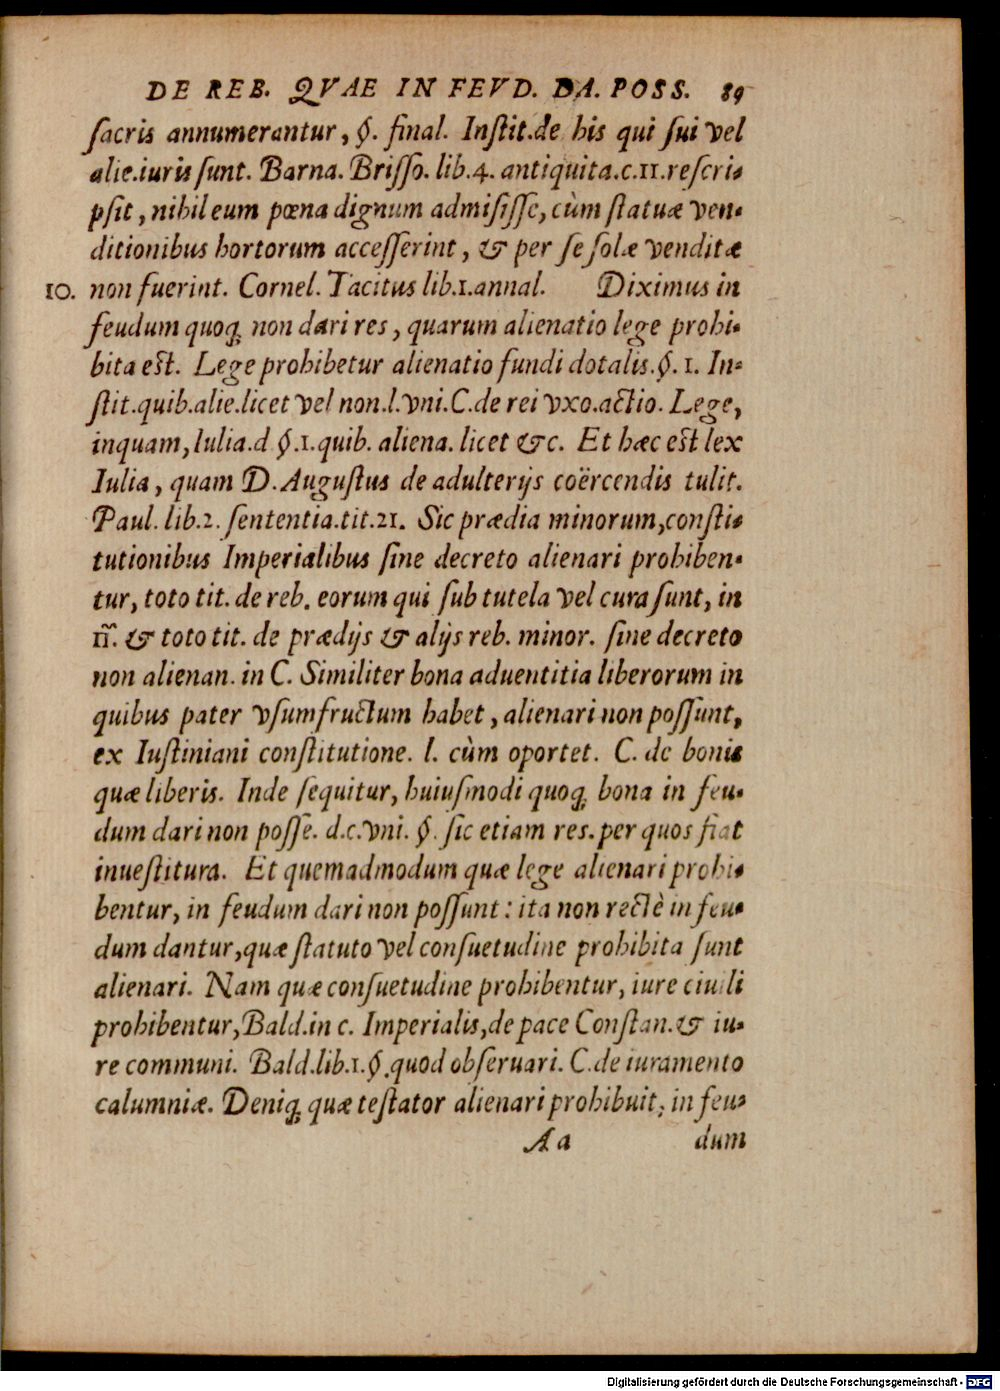 DE REB. QVAE IN FEVD. DA. POSS. 89
ſacris annumerantur, §. final. Inſtit.de his qui ſui vel
alie.iuris ſunt. Barna. Briſſo. lib.4. antiquita.c.11.reſcri-
pſit, nihil eum pœna dignum admiſiſſe, cùm ſtatuæ ven-
ditionibus hortorum acceſſerint, & per ſe ſolæ venditæ
10. non fuerint. Cornel. Tacitus lib.1.annal. Diximus in
feudum quoq; non dari res, quarum alienatio lege prohi-
bita eſt. Lege prohibetur alienatio fundi dotalis.§. 1. In-
ſtit.quib.alie.licet vel non.l.vni.C.de rei vxo.actio. Lege,
inquam, Iulia.d §.1.quib. aliena. licet &c. Et hæc eſt lex
Iulia, quam D. Auguſtus de adulterijs coërcendis tulit.
Paul. lib.2. ſententia.tit.21. Sic prædia minorum, conſti-
tutionibus Imperialibus ſine decreto alienari prohiben-
tur, toto tit. de reb. eorum qui ſub tutela vel cura ſunt, in
π̃. & toto tit. de prædijs & alijs reb. minor. ſine decreto
non alienan. in C. Similiter bona aduentitia liberorum in
quibus pater vſumfructum habet, alienari non poſſunt,
ex Iuſtiniani conſtitutione. l. cùm oportet. C. de bonis
quæ liberis. Inde ſequitur, huiuſmodi quoq; bona in feu-
dum dari non poſſe. d.c.vni. §. ſic etiam res. per quos fiat
inueſtitura. Et quemadmodum quæ lege alienari prohi-
bentur, in feudum dari non poſſunt: ita non rectè in feu-
dum dantur, quæ ſtatuto vel conſuetudine prohibita ſunt
alienari. Nam quæ conſuetudine prohibentur, iure ciuili
prohibentur, Bald.in c. Imperialis, de pace Conſtan.& iu-
re communi. Bald.lib.1.§.quod obſeruari. C.de iuramento
calumniæ. Deniq; quæ teſtator alienari prohibuit, in feu-
Aa dum
Digitalisierung gefördert durch die Deutsche Forschungsgemeinschaft - DFG